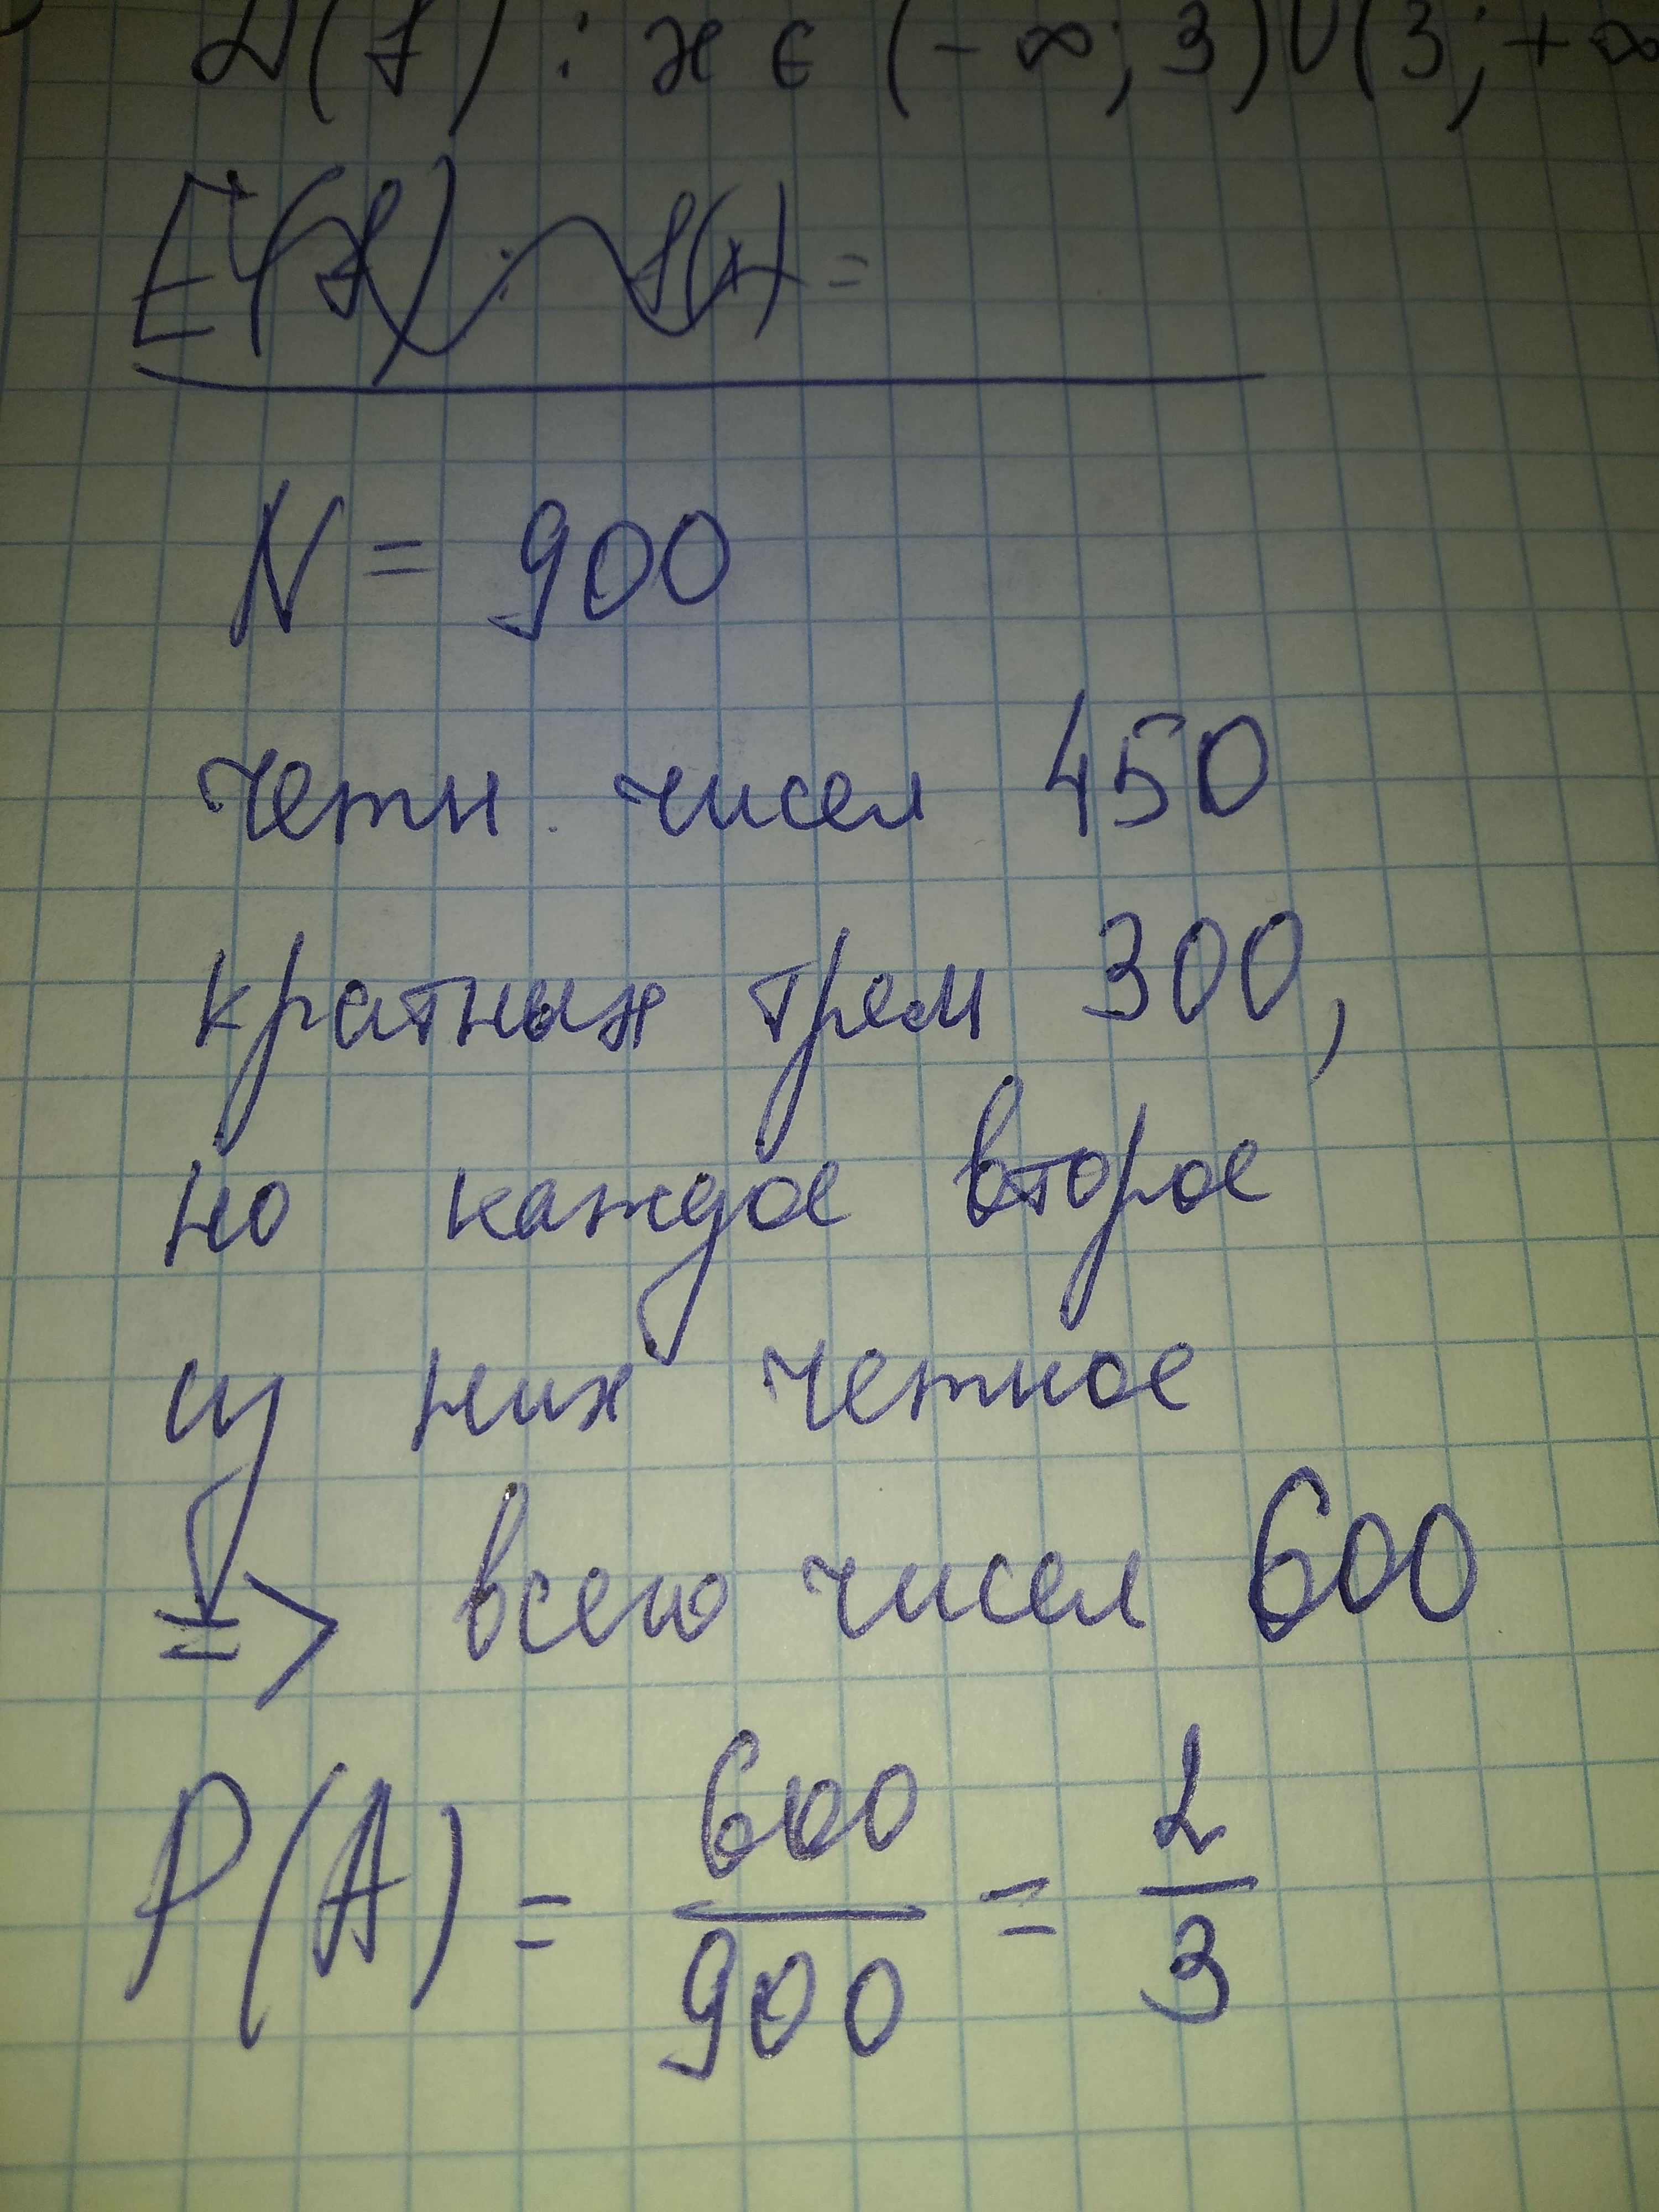 D(f) : x ∈ (-∞; 3)∪(3; +∞
E(f) : f(x) =
N = 900
четн. чисел 450
кратных трем 300,
но каждое второе
из них четное
=> всего чисел 600
P(A) = 600/900 = 2/3